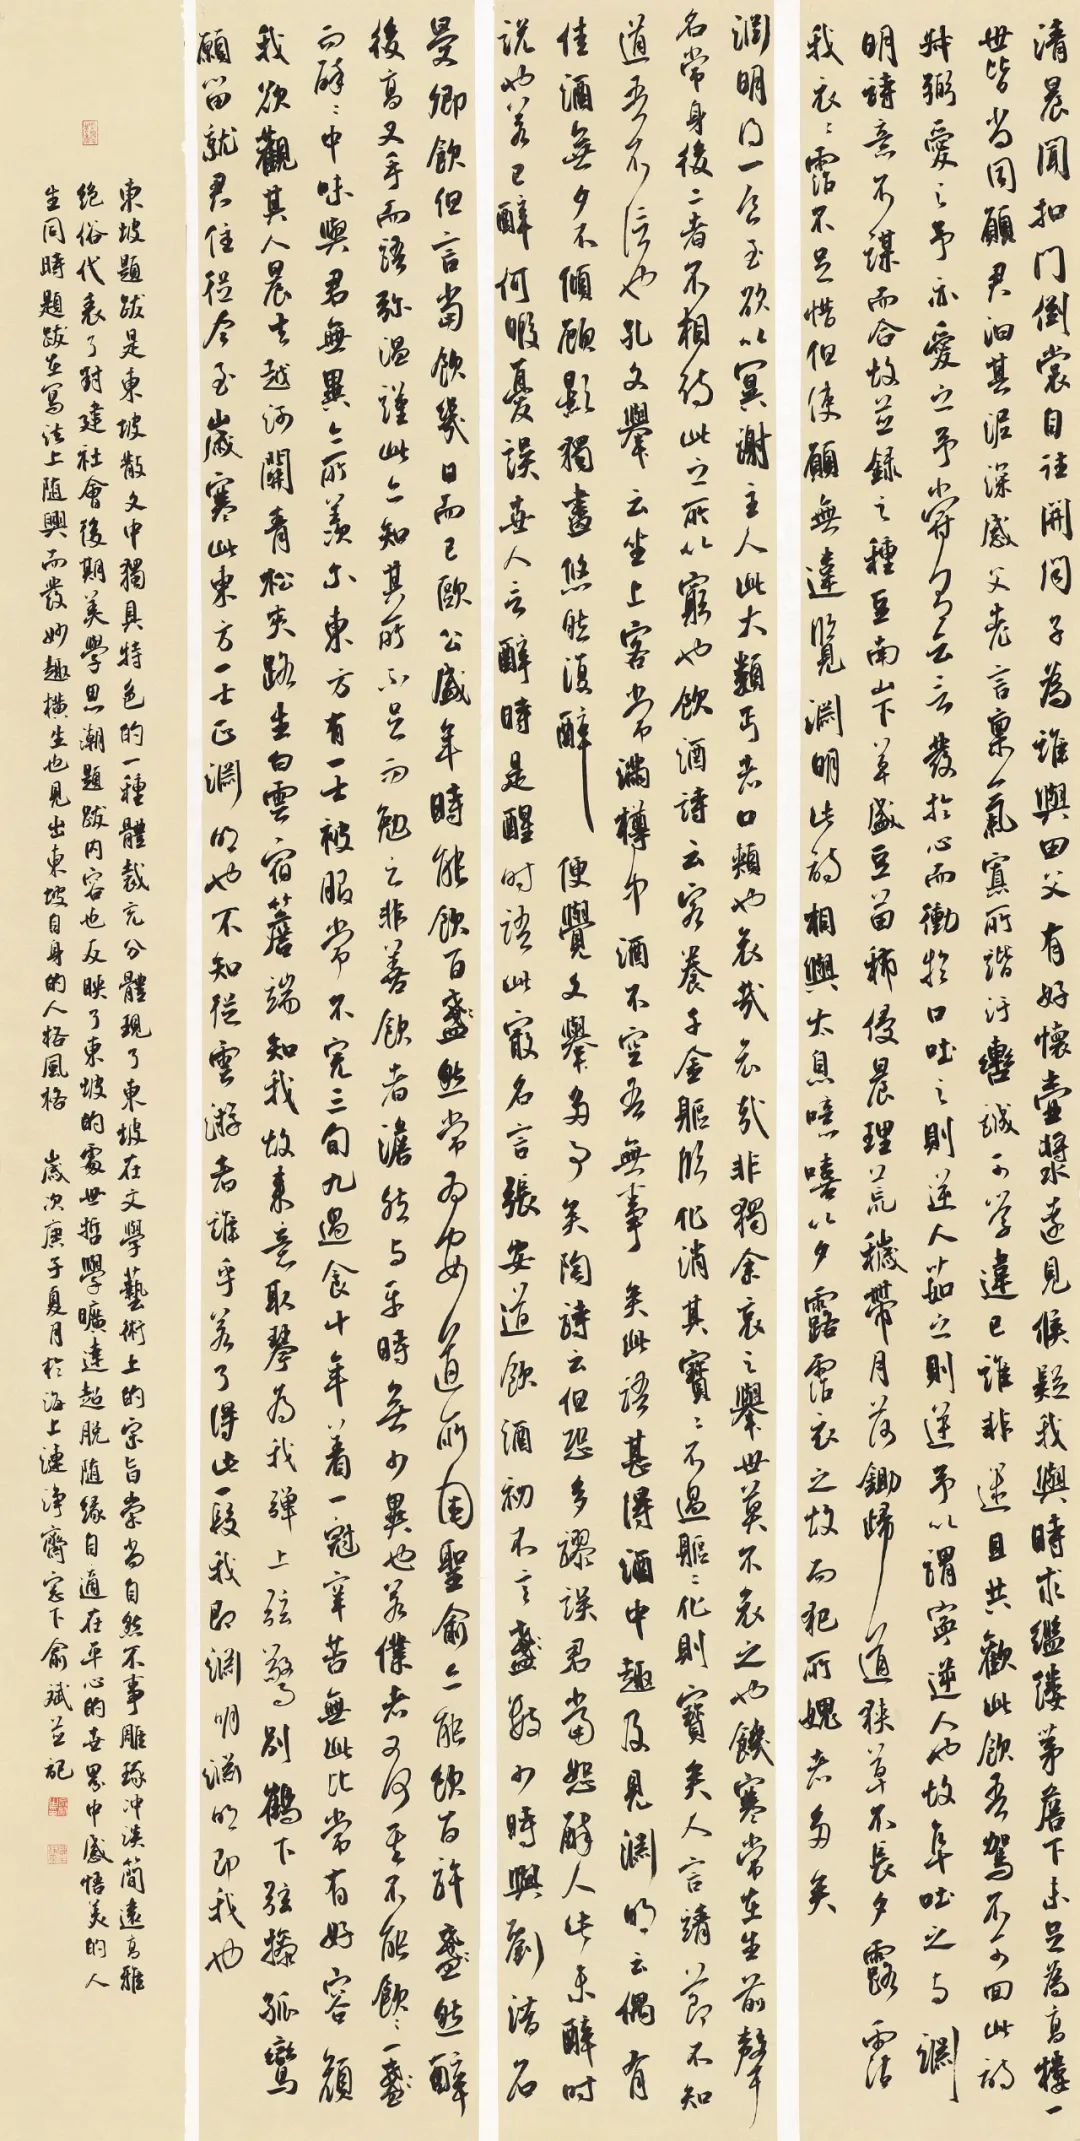 清晨聞扣門倒裳自往開問子為誰與田父有好懷壺漿遠見候疑我與時乖繿縷茅簷下未足為高棲一
世皆尚同願君汩其泥深感父老言稟氣寡所諧紆轡誠可學違己詎非迷且共歡此飲吾駕不可回此詩
叔弼愛之予亦愛之予嘗有云言發於心而衝於口吐之則逆人茹之則逆予以謂寧逆人也故卒吐之與淵
明詩意不謀而合故並錄之種豆南山下草盛豆苗稀侵晨理荒穢帶月荷鋤歸道狹草木長夕露霑
我衣衣霑不足惜但使願無違覽淵明此詩相與太息噫嘻以夕露霑衣之故而犯所愧者多矣
淵明得一食至欲以冥謝主人此大類丐者口頰也哀哉哀哉非獨余哀之舉世莫不哀之也饑寒常在生前聲
名常身後二者不相待此之所以窮也飲酒詩云客養千金軀臨化消其寶寶不過軀軀化則寶矣人言靖節不知
道吾不信也孔文舉云坐上客常滿樽中酒不空吾無事矣此語甚得酒中趣及見淵明云偶有
佳酒無夕不傾顧影獨盡悠然復醉便覺文舉多事矣陶詩云但恐多謬誤君當恕醉人此未醉時
說也若已醉何暇憂誤哉人言醉時是醒時語此最名言張安道飲酒初不言盞數少時與劉潛石
曼卿飲但言當飲幾日而已歐公盛年時能飲百盞然常為安道所困聖俞亦能飲百許盞然醉
後高叉手而語彌溫謹此亦知其所不足而勉之非善飲者澹然與平時無少異也若僕者又何其不能飲飲一盞
而醉醉中味與君無異亦所羨爾東方有一士被服常不完三旬九遇食十年著一冠辛苦無此比常有好容顏
我欲觀其人晨去越河關青松夾路生白雲宿簷端知我故來意取琴為我彈上弦驚別鶴下弦操孤鸞
願留就君住從今至歲寒此東方一士正淵明也不知從雲游者誰乎若了得此一段我即淵明淵明即我也
東坡題跋是東坡散文中獨具特色的一種體裁充分體現了東坡在文學藝術上的宗旨崇尚自然不事雕琢沖淡簡遠高雅
絕俗代表了封建社會後期美學思潮題跋內容也反映了東坡的處世哲學曠達超脫隨緣自適在平心的世界中感悟美的人
生同時題跋在寫法上隨興而發妙趣橫生也見出東坡自身的人格風格 歲次庚子夏月於海上漣淨齋窗下俞斌並記